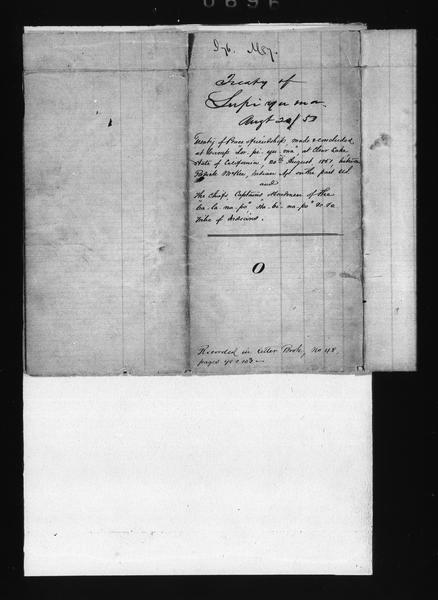 Treaty of
Lupiyuma.
Augt 20/51
Treaty of Peace & friendship, made & concluded
at Camp Lu-pi-yu-ma, at Clear Lake
State of California, 20th August 1851, between
Redick McKee, Indian Agt on the part U.S.
and
The Chiefs, Captains & headmen of the
"Ca-la-na-po" "Ha-bi-na-po" &c &c
Tribe of Indians.
O
Recorded in Letter Book, No 48,
pages